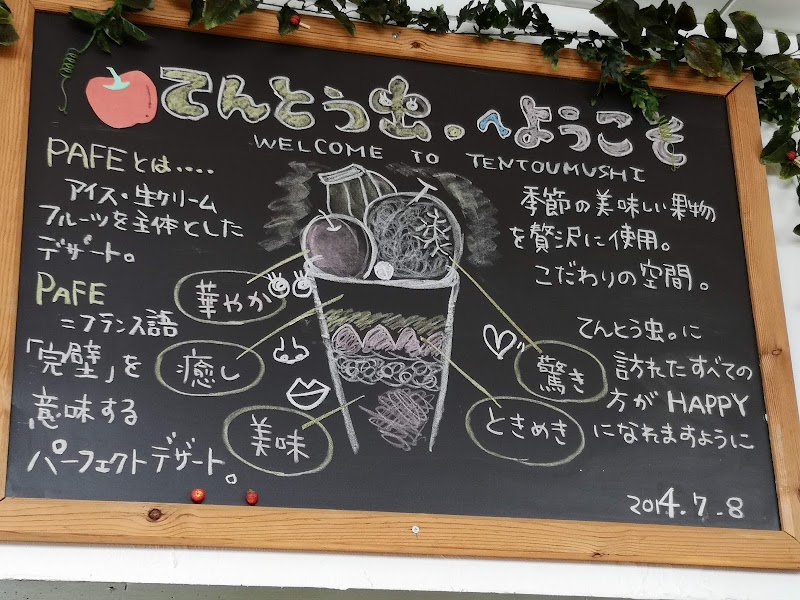 てんとう虫。へようこそ
WELCOME TO TENTOUMUSHI
PAFEとは....
アイス・生クリーム
フルーツを主体とした
デザート。
PAFE
=フランス語
「完璧」を
意味する
パーフェクトデザート。
華やか
癒し
美味
驚き
ときめき
季節の美味しい果物
を贅沢に使用。
こだわりの空間。
てんとう虫。に
訪れたすべての
方が HAPPY
になれますように
2014.7.8